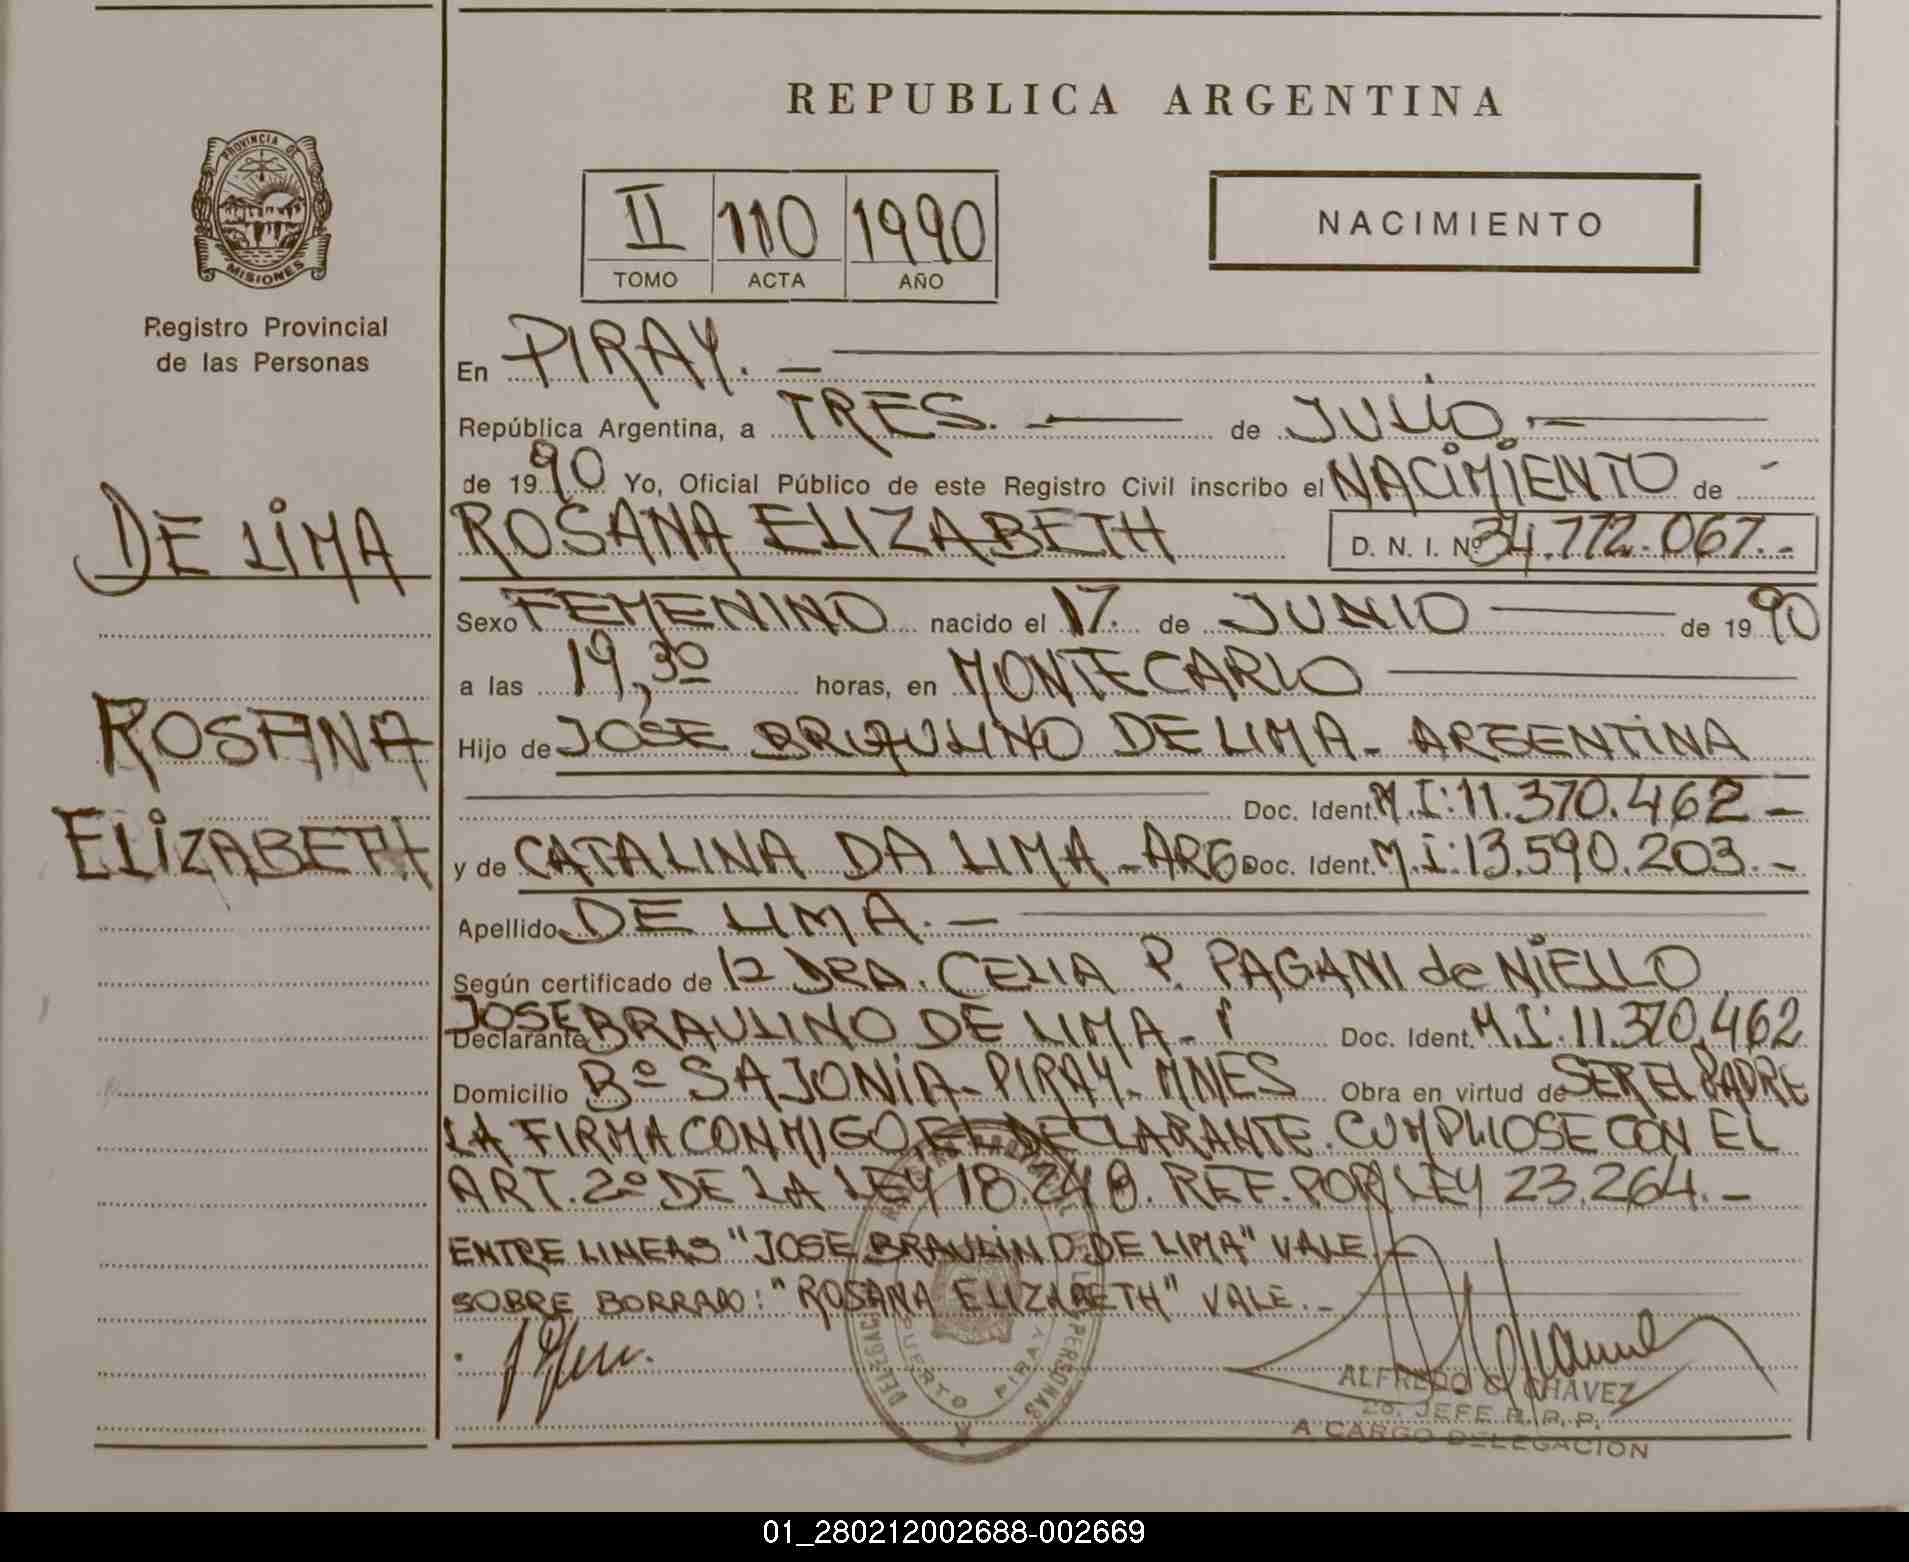 REPUBLICA ARGENTINA
PROVINCIA DE
MISIONES
Registro Provincial
de las Personas
II 110 1990
TOMO ACTA AÑO
NACIMIENTO
En PIRAY. —
República Argentina, a TRES. — de JULIO. —
de 1990 Yo, Oficial Público de este Registro Civil inscribo el NACIMIENTO de -
DE LIMA
ROSANA ELIZABETH D. N. I. Nº 34.772.067.-
Sexo FEMENINO nacido el 17. de JUNIO — de 1990
a las 19,30 horas, en MONTECARLO —
ROSANA
Hijo de JOSE BRAULINO DE LIMA - ARGENTINA
Doc. Ident. M.I: 11.370.462 -
ELIZABETH
y de CATALINA DA LIMA - ARG Doc. Ident. M.I: 13.590.203. -
Apellido DE LIMA. —
Según certificado de 12 DRA. CELIA P. PAGANI de NIELLO
JOSE BRAULINO DE LIMA -
Declarante Doc. Ident. M.I: 11.370.462
Domicilio Bº SAJONIA - PIRAY - MNES Obra en virtud de SER EL PADRE
LA FIRMA CONMIGO, EL DECLARANTE. CUMPLIOSE CON EL
ART. 2º DE LA LEY 18.248. REF. POR LEY 23.264. -
ENTRE LINEAS "JOSE BRAULINO DE LIMA" VALE. -
SOBRE BORRADO: "ROSANA ELIZABETH" VALE. -
PUERTO PIRAY
ALFREDO C. CHAVEZ
2o. JEFE R. P. P.
A CARGO DELEGACION
01_280212002688-002669